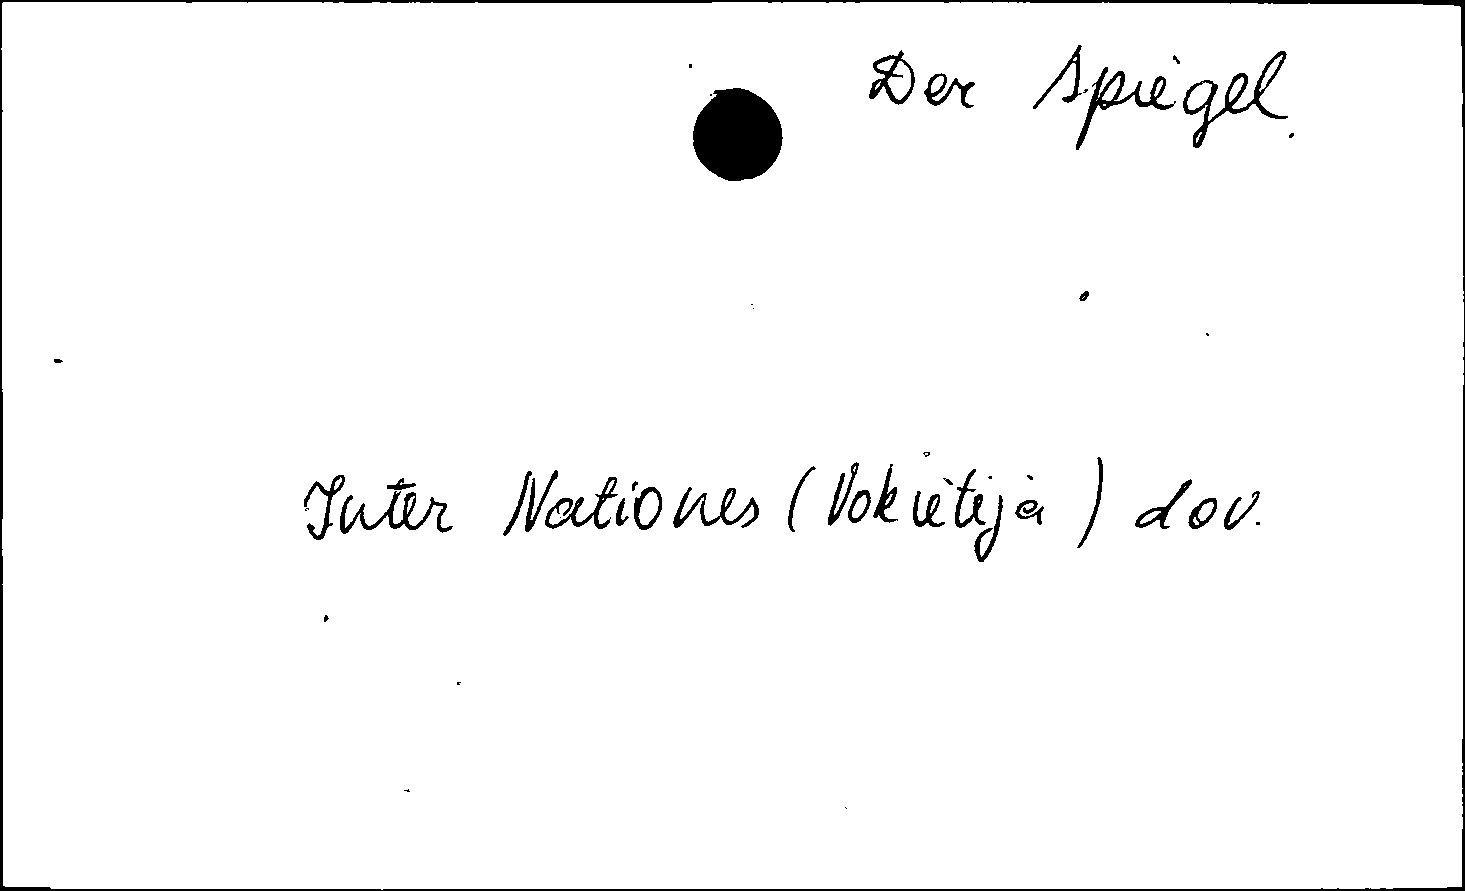 Der Spiegel.
Inter Nationes (Vokietija) dov.